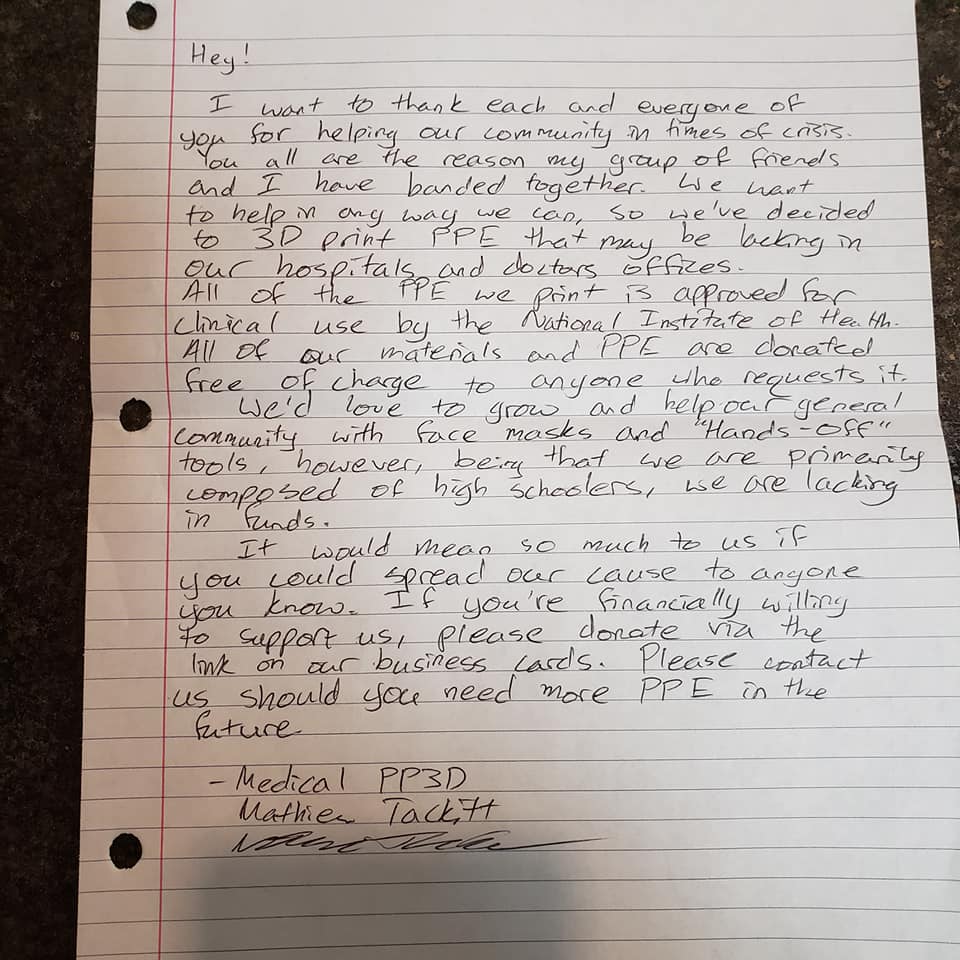 Hey!
I want to thank each and everyone of
you for helping our community in times of crisis.
You all are the reason my group of friends
and I have banded together. We want
to help in any way we can, so we've decided
to 3D print PPE that may be lacking in
our hospitals and doctors offices.
All of the PPE we print is approved for
clinical use by the National Institute of Health.
All of our materials and PPE are donated
free of charge to anyone who requests it.
We'd love to grow and help our general
community with face masks and "Hands-off"
tools, however, being that we are primarily
composed of high schoolers, we are lacking
in funds.
It would mean so much to us if
you could spread our cause to anyone
you know. If you're financially willing
to support us, please donate via the
link on our business cards. Please contact
us should you need more PPE in the
future.
- Medical PP3D
Mathieu Tackitt